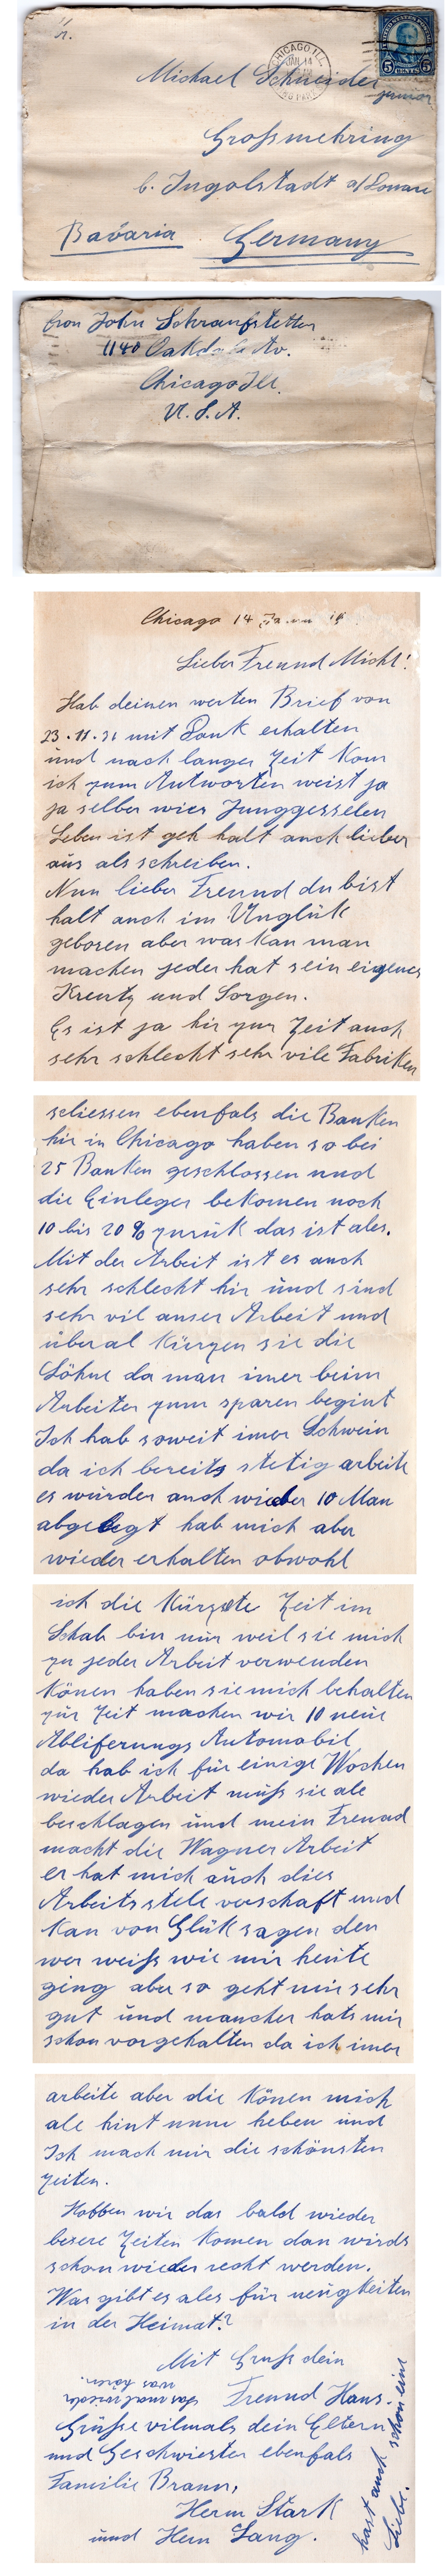 Michael Schneider
junior
Großmehring
b. Ingolstadt a/Donau
Bavaria Germany
CHICAGO ILL.
JAN 14
UNITED STATES POSTAGE
5 CENTS 5
from John Schranfstetter
1140 Oakdale Av.
Chicago Ill.
U.S.A.
Chicago 14
Lieber Freund Michl!
Hab deinen werten Brief von
23.11.31 mit Dank erhalten
und nach langer Zeit Kom
ich zum Antworten weist ja
ja selber wies Junggesselen
Leben ist geh halt auch lieber
aus als schreiben.
Nun lieber Freund du bist
halt auch im Unglük
geboren aber was kan man
machen jeder hat sein eigenes
Kreutz und Sorgen.
Es ist ja hir zur Zeit auch
sehr schlecht sehr vile Fabriken
schliessen ebenfals die Banken
hir in Chicago haben so bei
25 Banken geschlossen und
die Einleger bekomen noch
10 bis 20 % zurük das ist ales.
Mit der Arbeit ist es auch
sehr schlecht hir und sind
sehr vil auser Arbeit und
überal Kürzen sie die
Löhne da man imer beim
Arbeiter zum sparen begint
Ich hab soweit imer Schwein
da ich bereits stetig arbeite
es würden auch wieder 10 Man
abgelegt hab mich aber
wieder erhalten obwohl
ich die Kürzste Zeit im
Schab bin nur weil sie mich
zu jeder Arbeit verwenden
Könen haben sie mich behalten
zur Zeit machen wir 10 neue
Abliferungs Automobil
da hab ich für einige Wochen
wieder Arbeit muß sie ale
beschlagen und mein Freund
macht die Wagner Arbeit
er hat mich auch dies
Arbeitsstele verschaft und
Kan von Glük sagen den
wer weiß wie mir heute
ging aber so geht mir sehr
gut und mancher hats mir
schon vorgehalten da ich imer
arbeite aber die Könen mich
ale hint nunn heben und
Ich mach mir die schönsten
Zeiten.
Hobben wir das bald wieder
besere Zeiten Komen dan wirds
schon wieder recht werden.
Was gibt es ales für neuigkeiten
in der Heimat?
Mit Gruß dein
Freund Hans.
las mal wieder
was hören.
Grüße vilmals dein Eltern
und Geschwister ebenfals
Familie Braun,
Herm Stark
und Hern Lang.
hast auch schon eine
Liebe.